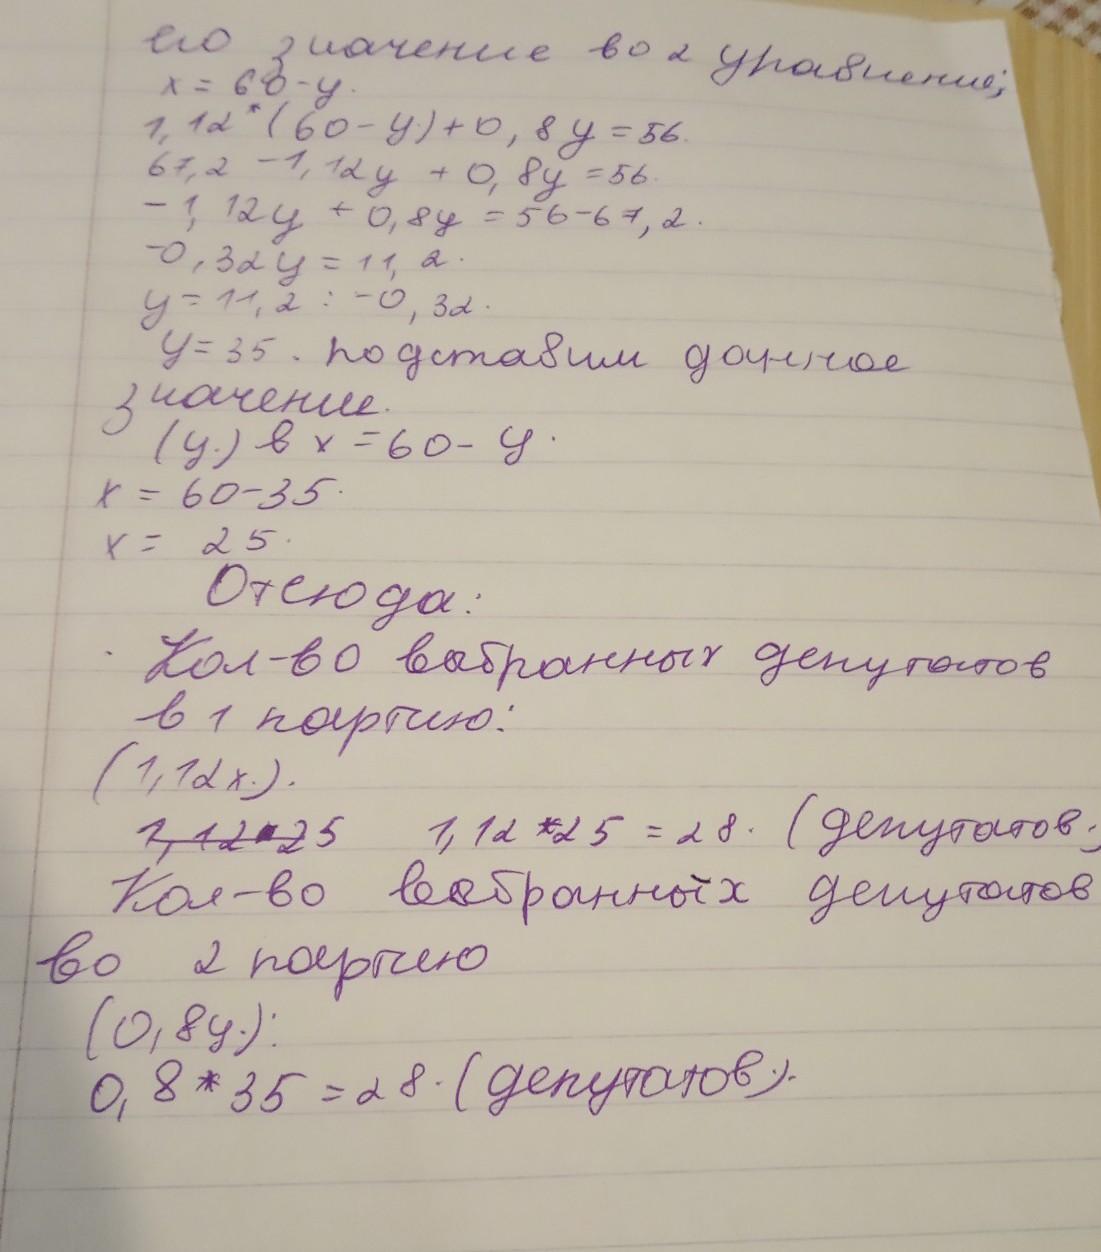 его значение во 2 уравнение;
x = 60-y.
1,12*(60-y)+0,8y=56.
67,2 -1,12y + 0,8y=56.
-1,12y + 0,8y = 56-67,2.
-0,32y = 11,2.
y = 11,2 : -0,32.
y=35. подставим данное
значение.
(y.) в x = 60-y.
x = 60-35.
x = 25.
Отсюда:
Кол-во выбранных депутатов
в 1 партию:
(1,12x.).
1,12*25 1,12*25 = 28. (депутатов.)
Кол-во выбранных депутатов
во 2 партию
(0,8y.):
0,8*35 = 28. (депутатов).